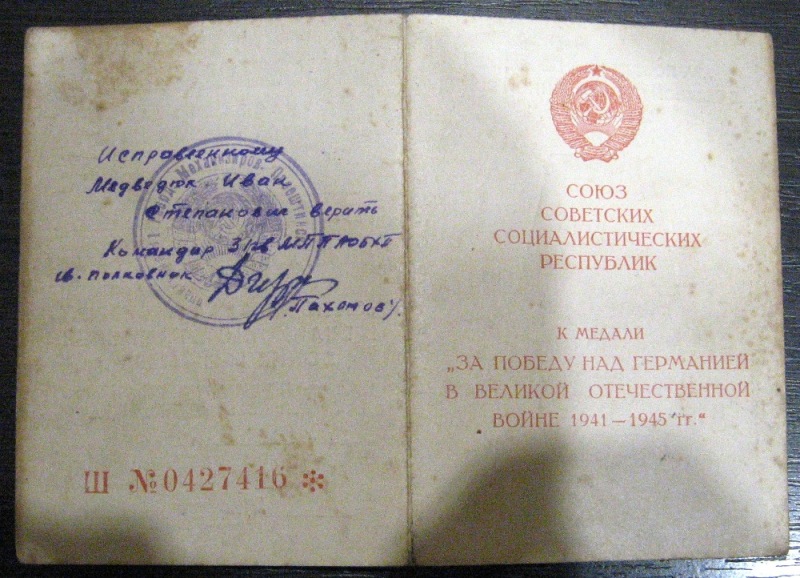 Исправленному
Медведюк Иван
Степанович верить
Командир
полковник
Пахомов
Ш №0427416
СОЮЗ
СОВЕТСКИХ
СОЦИАЛИСТИЧЕСКИХ
РЕСПУБЛИК
К МЕДАЛИ
„ЗА ПОБЕДУ НАД ГЕРМАНИЕЙ
В ВЕЛИКОЙ ОТЕЧЕСТВЕННОЙ
ВОЙНЕ 1941—1945 гг.“